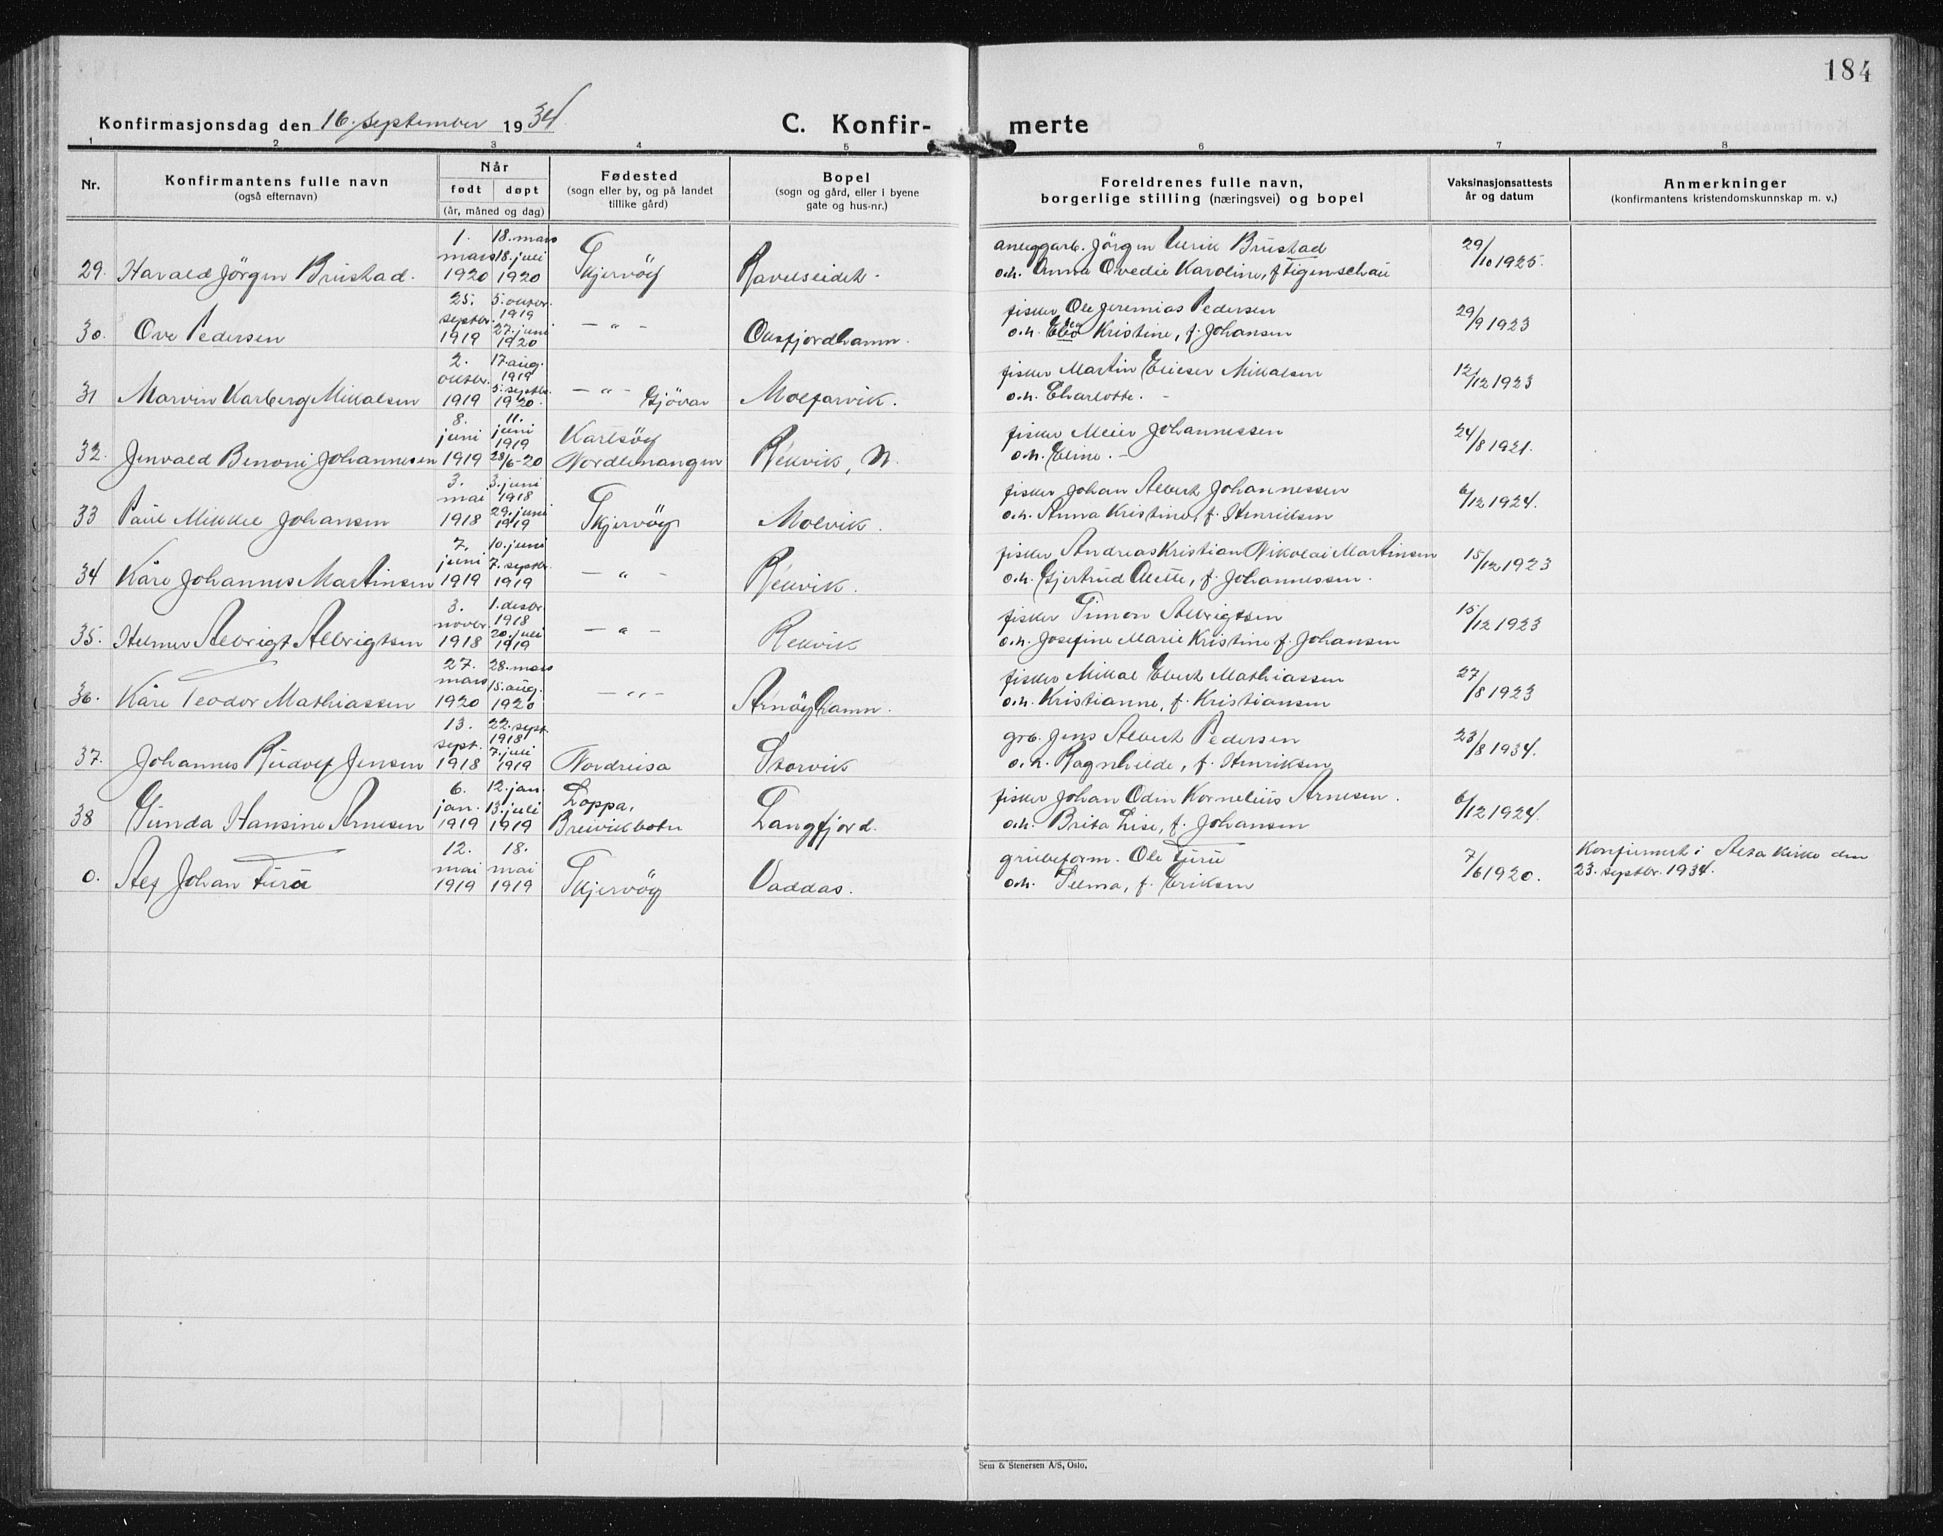 184
Konfirmasjonsdag den 16. september 1934. C. Konfir- merte
1 2 3 4 5 6 7 8
Nr. Konfirmantens fulle navn (også efternavn) Når født døpt (år, måned og dag) Fødested (sogn eller by, og på landet tillike gård) Bopel (sogn og gård, eller i byene gate og hus-nr.) Foreldrenes fulle navn, borgerlige stilling (næringsvei) og bopel Vaksinasjonsattests år og datum Anmerkninger (konfirmantens kristendomskunnskap m. v.)
29. Harald Jörgen Brustad. 1. mars 1920 18. mars 18. juli 1920 Skjervöy Ravelseidet. anleggarb. Jörgen Ulrik Brustad o.h. Anna Ovedie Karoline, f. Eigenschau 29/10 1925.
30. Ove Pedersen 25. septbr. 1919 5. oktbr. 1919 27. juni 1920 — " — Oksfjordhamn. fisker Ole Jeremias Pedersen o.h. Kristine, f. Johansen 29/9 1923
31 Marvin Karberg Mikalsen 2. oktbr. 1919 17. aug. 1919 5. septbr. 1920. — " — Gjövar Molfarvik. fisker Martin Elieser Mikalsen o.h. Charlotte. - 12/12 1923
32. Jenvald Benoni Johannesen 8. juni 1919 11. juni 1919 28/6-20 Karlsöy Nordlenangen Rekvik, N. fisker Meier Johannessen o.h. Eline. — 24/8 1921.
33 Paul Mikkel Johansen 3. mai 1918 3. juni 1918 29. juni 1919 Skjervöy Molvik. fisker Johan Albert Johannessen o.h. Anna Kristine, f. Henriksen 6/12 1924.
34 Kåre Johannes Martinsen 7. juni 1919 10. juni 7. septbr. 1919 — " — Rekvik. fisker Andreas Kristian Nikolai Martinsen o.h. Gjertrud Alette, f. Johannessen. 15/12 1923
35. Helmer Albrigt Albrigtsen 3. novbr. 1918 1. desbr. 1918 20. juli 1919 — " — Rekvik fisker Simon Albrigtsen o.h. Josefine Marie Kristine f. Johansen 15/12 1923
36. Kåre Teodor Mathiassen 27. mars 1920 28. mars 15. aug. 1920 — " — Arnöyhamn. fisker Mikal Ebert Mathiassen o.h. Kristianne, f. Kristiansen 27/8 1923
37. Johannes Rudolf Jensen 13. sept. 1918 22. sept. 1918 7. juli 1919 Nordreisa Storvik grb. Jens Albert Pedersen o.h. Ragnhilde, f. Henriksen 23/8 1934.
38 Gunda Hansine Arnesen 6. jan. 1919 12. jan. 13. juli 1919 Loppa, Breivikbotn Langfjord. fisker Johan Odin Kornelius Arnesen. o.h. Brita Lise, f. Johansen 6/12 1924.
0. Alf Johan Furu 12. mai 1919 18. mai 1919 Skjervöy Vaddas. grubeform. Ole Furu o.h. Selma, f. Eriksen 7/6 1920. Konfirmert i Alta kirke den 23. septbr. 1934.
Sem & Stenersen A/S, Oslo.